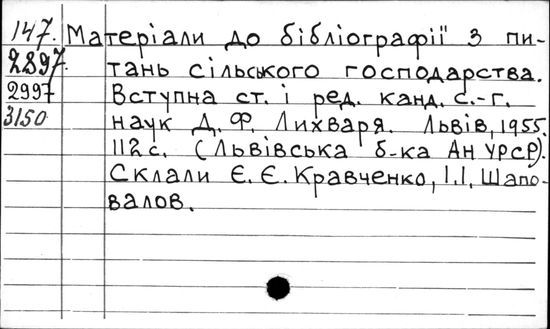 147. Матеріали до бібліографії з пи-
2897. тань сільського господарства.
2997 Вступна ст. і ред. канд. с.-г.
3150 наук Д. Ф. Лихваря. Львів, 1955.
112 с. (Львівська б-ка Ан УРСР).
Склали Є. Є. Кравченко, І. І. Шапо-
валов.